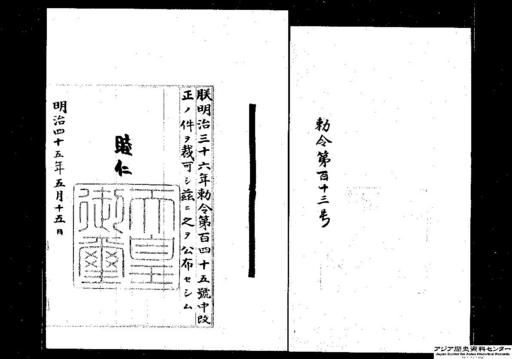 勅令第百十三号
朕明治三十六年勅令第百四十五號中改
正ノ件ヲ裁可シ茲ニ之ヲ公布セシム
睦仁
天皇
御璽
明治四十五年五月十五日
アジア歴史資料センター
Japan Center for Asian Historical Records